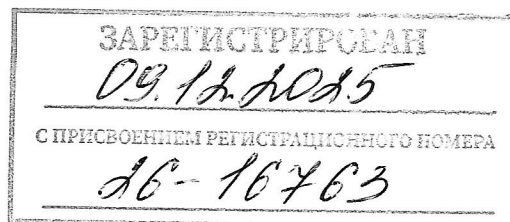 ЗАРЕГИСТРИРОВАН
09.12.2025
С ПРИСВОЕНИЕМ РЕГИСТРАЦИОННОГО НОМЕРА
26-16763